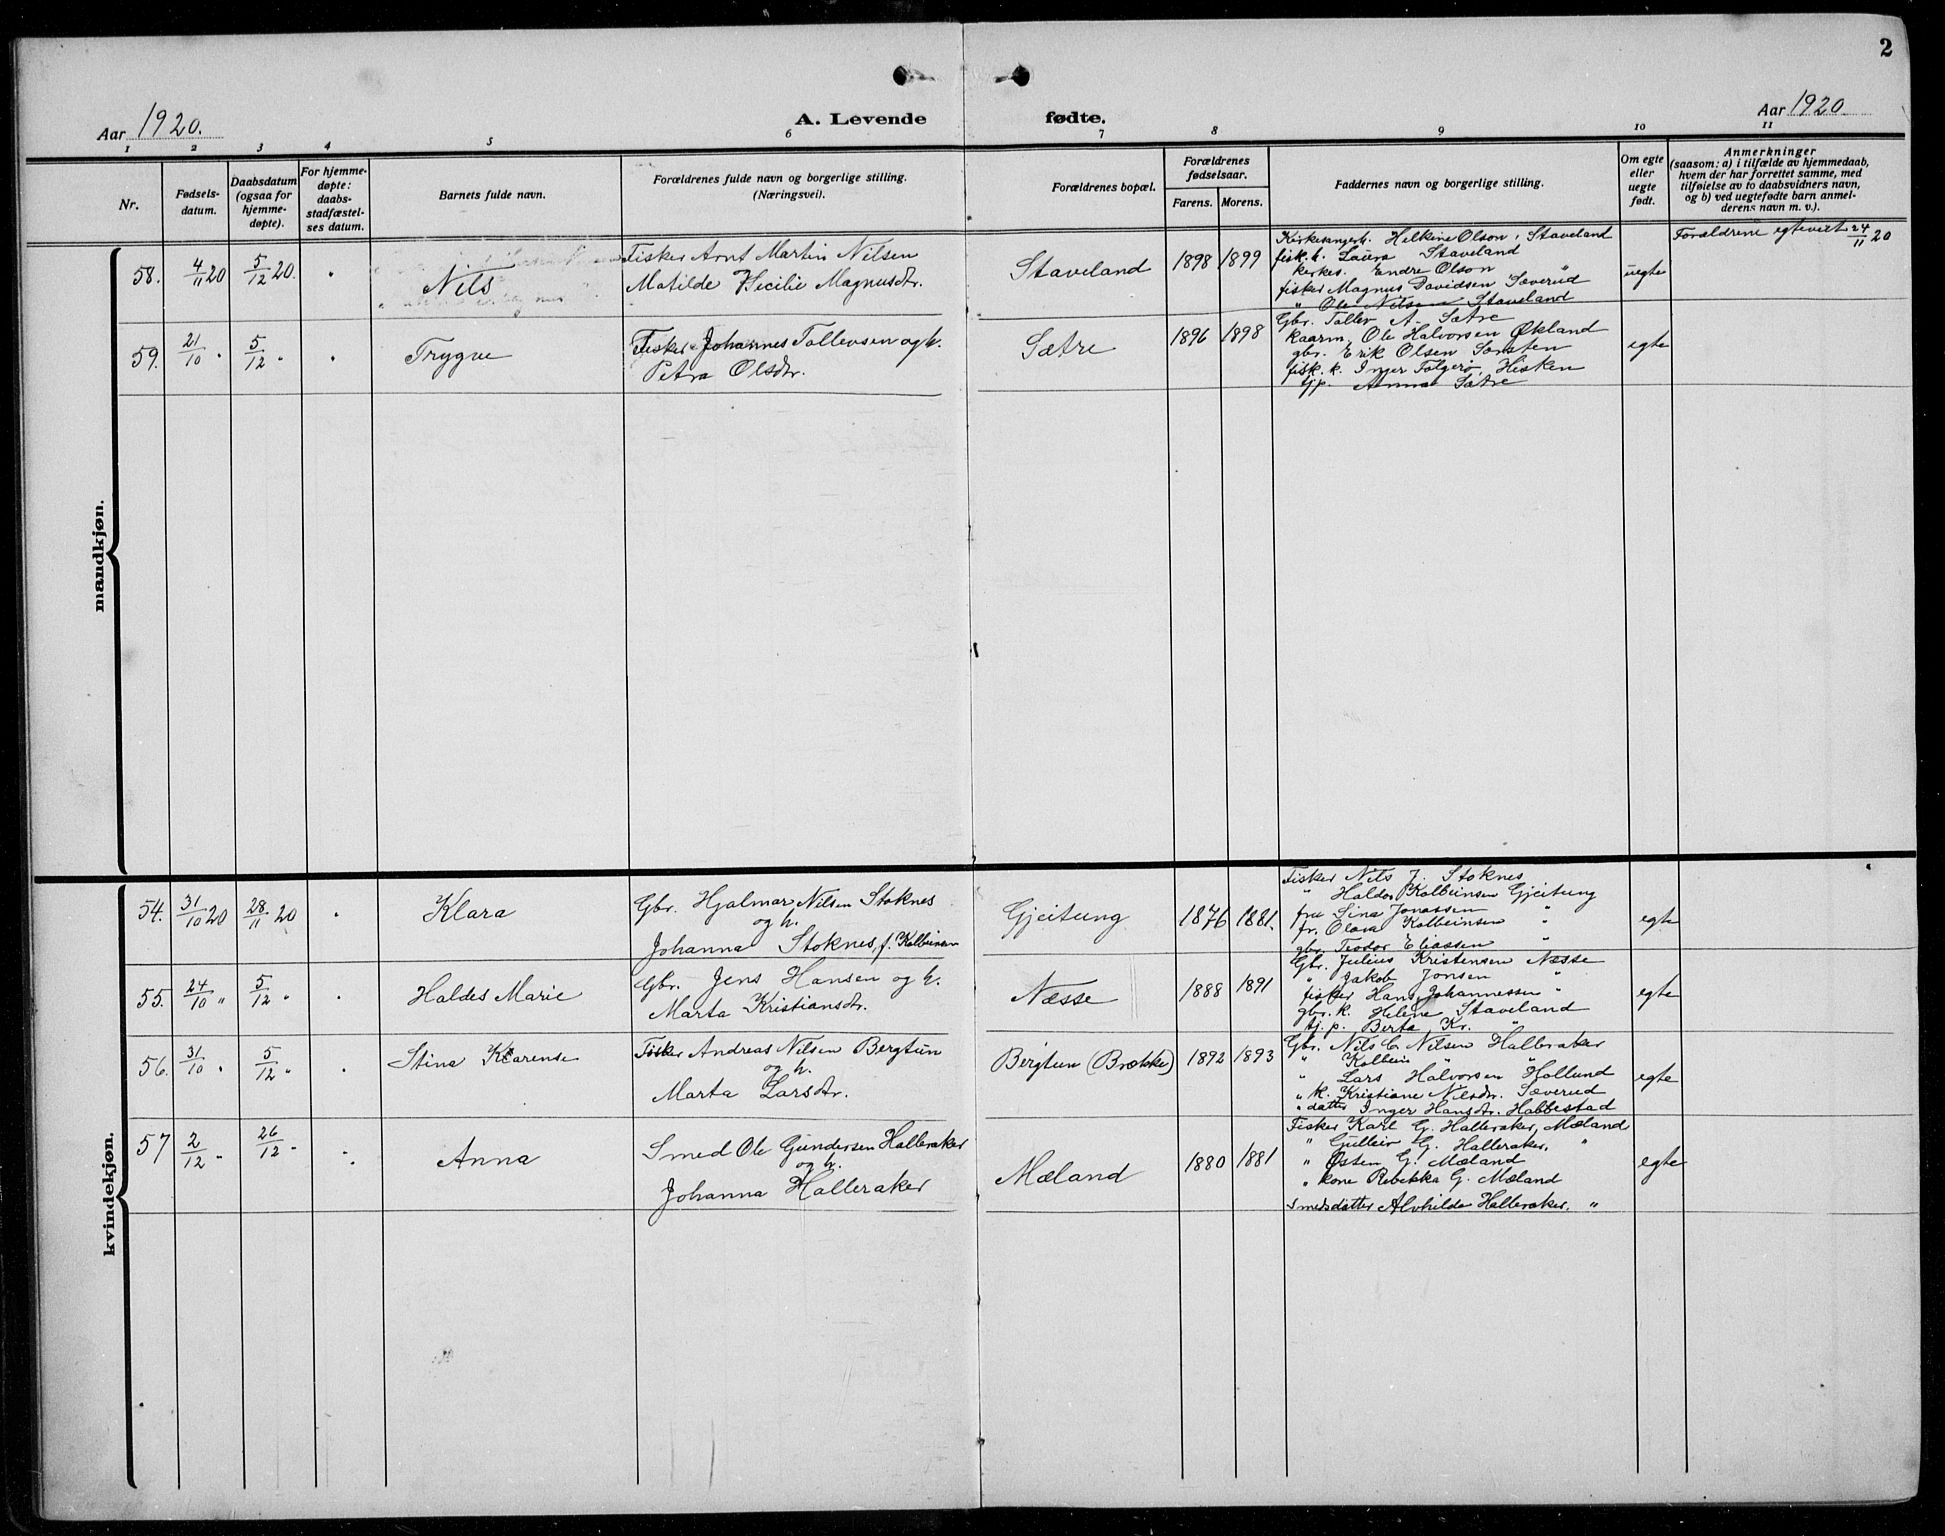 2
Aar 1920.
A. Levende
fødte.
Aar 1920
1 2 3 4 5 6 7 8 9 10 11
Nr.
Fødsels-
datum.
Daabsdatum
(ogsaa for
hjemme-
døpte).
For hjemme-
døpte:
daabs-
stadfæstel-
ses datum.
Barnets fulde navn.
Forældrenes fulde navn og borgerlige stilling.
(Næringsvei).
Forældrenes bopæl.
Forældrenes
fødselsaar.
Farens. Morens.
Faddernes navn og borgerlige stilling.
Om egte
eller
uegte
født.
Anmerkninger
(saasom: a) i tilfælde av hjemmedaab,
hvem der har forrettet samme, med
tilføielse av to daabsvidners navn,
og b) ved uegtefødte barn anmel-
derens navn m. v.).
mandkjøn.
58. 4/11 20 5/12 20. "
Nils
Fisker Arnt Martin Nilsen
Matilde Cecilie Magnusdr.
Staveland
1898 1899
Kirkesangers. Helkine Olson, Staveland
fisk. k. Laura Staveland
kirkes. Endre Olson "
fisker Magnus Davidsen Sæverud
" Ole Nilsen Staveland
uegte
Forældrene egteviet 24/11 20
59. 21/10 " 5/12 " "
Trygve
Fisker Johannes Tollevsen og h.
Petra Olsdr.
Sætre
1896 1898
Gbr. Tollev A. Sætre
kaarm. Ole Halvorsen Økland
gbr. Erik Olsen
fisk. k. Inger Folgerø, Hisken
tjp. Anna Sætre
egte
kvindekjøn.
54. 31/10 20 28/11 20 "
Klara
Gbr. Hjalmar Nilsen Stoknes
og h.
Johanna Stoknes, f. Kolbeinsen
Gjeitung
1876 1881.
Fisker Nils J. Stoknes
" Haldor Kolbeinsen Gjeitung
fru Sina Jonassen "
fr. Olava Kolbeinsen "
gbr. Teodor Eliassen "
egte
55. 24/10 " 5/12 " "
Haldes Marie
Gbr. Jens Hansen og h.
Marta Kristiansdr.
Næsse
1888 1891
Gbr. Julius Kristensen Næsse
" Jakob Jonsen "
fisker Hans Johannessen "
gbr. k. Helene Staveland
tj. p. Berta Kr. "
egte
56. 31/10 " 5/12 " "
Stina Klarense
Fisker Andreas Nilsen Bergtun
og h.
Marta Larsdr.
Bergtun (Brække)
1892 1893
Gbr. Nils C. Nilsen Halleraker
" Kolbein " "
" Lars Halvorsen Hollund
" k. Kristiane Nilsdr. Sæverud
" datter Inger Hansdr. Habbestad
egte
57 2/12 " 26/12 " "
Anna
Smed Ole Gundersen Halleraker
og h.
Johanna Halleraker
Mæland
1880 1881
Fisker Karl G. Halleraker, Mæland
" Gulleiv G. Halleraker, "
" Østen G. Mæland
" kone Rebekka G. Mæland
Smedsdatter Alvhilde Halleraker. "
egte